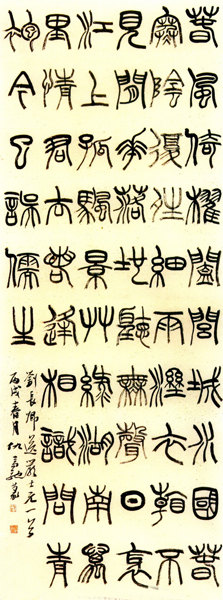 春風倚櫂闔閭城水國春
寒陰復晴細雨溼衣看不
見閒花落地聽無聲日斜
江上孤帆景艸綠湖南萬
里情君去若逢相識問青
袍今已誤儒生
劉長卿送嚴士元一首
丙戌春月